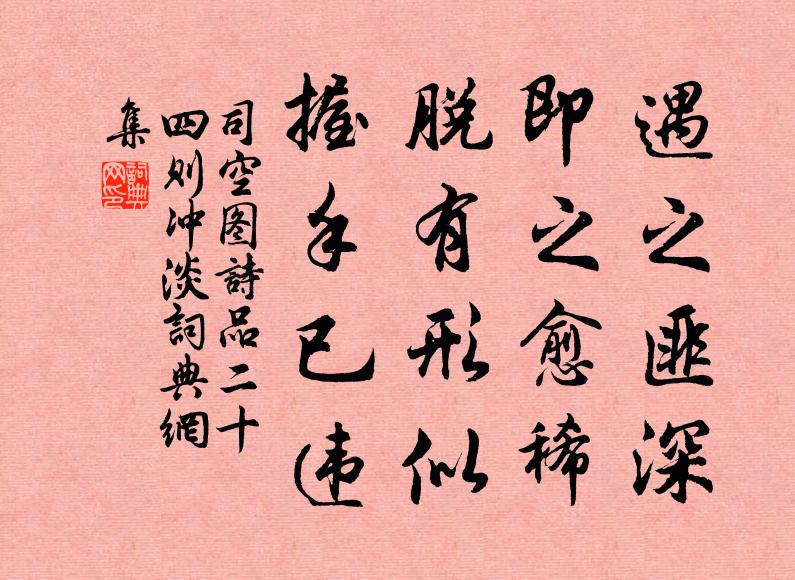 遇之匪深
即之愈稀
脱有形似
握手已违
司空图詩品二十
四则冲淡詞典網
集
詞典网印